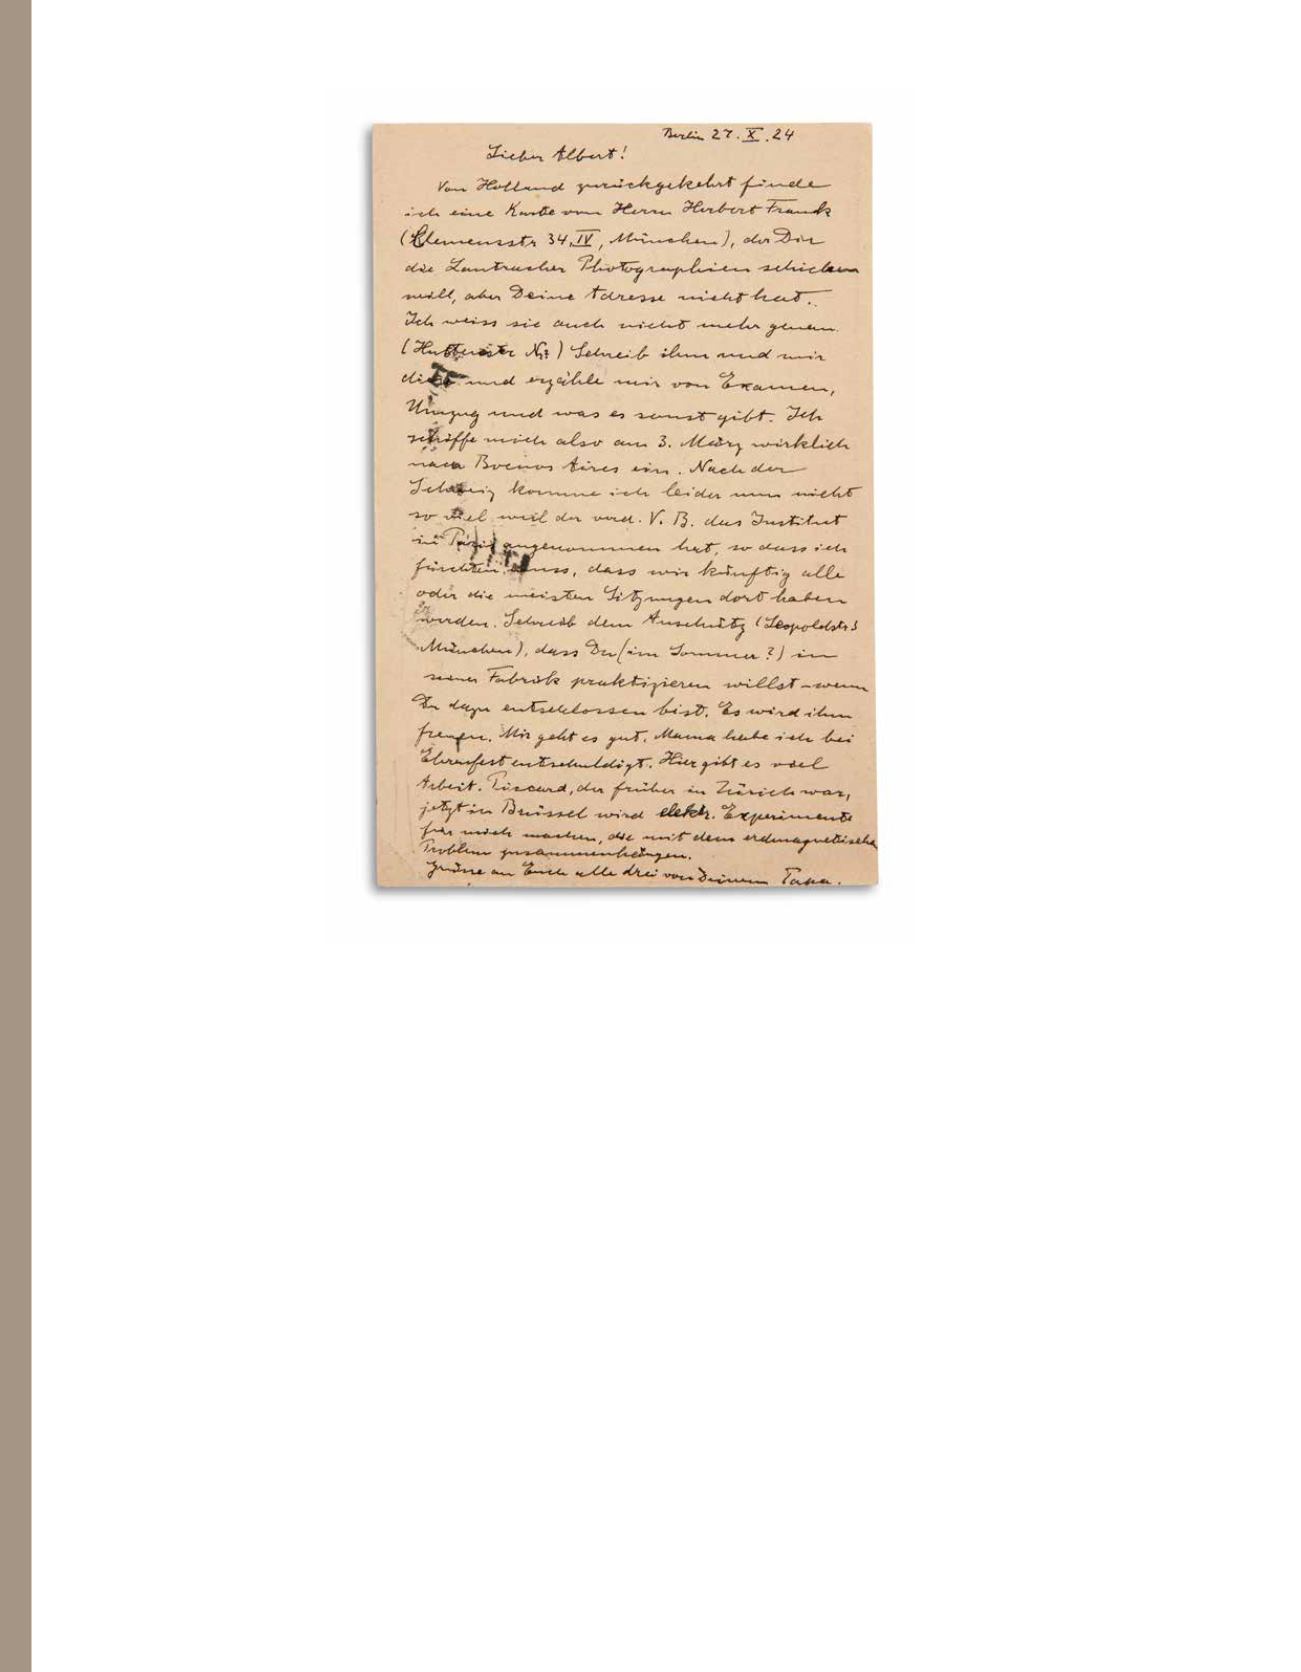 Berlin 27. X. 24
Lieber Albert!
Von Holland zurückgekehrt finde
ich eine Karte von Herrn Herbert Franck
(Clemensstr 34, IV, München), der Dir
die Lautracher Photographien schicken
will, aber Deine Adresse nicht hat.
Ich weiss sie auch nicht mehr genau.
(Huttenstr Nr?) Schreib ihm und mir
und erzähle mir von Examen,
Umzug und was es sonst gibt. Ich
schiffe mich also am 3. März wirklich
nach Buenos Aires ein. Nach der
Schweiz komme ich leider nun nicht
so viel weil der verd. V. B. das Institut
in Paris angenommen hat, so dass ich
fürchten muss, dass wir künftig alle
oder die meisten Sitzungen dort haben
werden. Schreib dem Anschütz (Leopoldstr
München), dass Du (im Sommer?) in
seiner Fabrik praktizieren willst – wenn
Du dazu entschlossen bist. Es wird ihn
freuen. Mir geht es gut. Mama habe ich bei
Ehrenfest entschuldigt. Hier gibt es viel
Arbeit. Piccard, der früher in Zürich war,
jetzt in Brüssel wird elektr. Experimente
für mich machen, die mit dem erdmagnetischen
Problem zusammenhängen.
Grüsse an Euch alle drei von Deinem Papa.